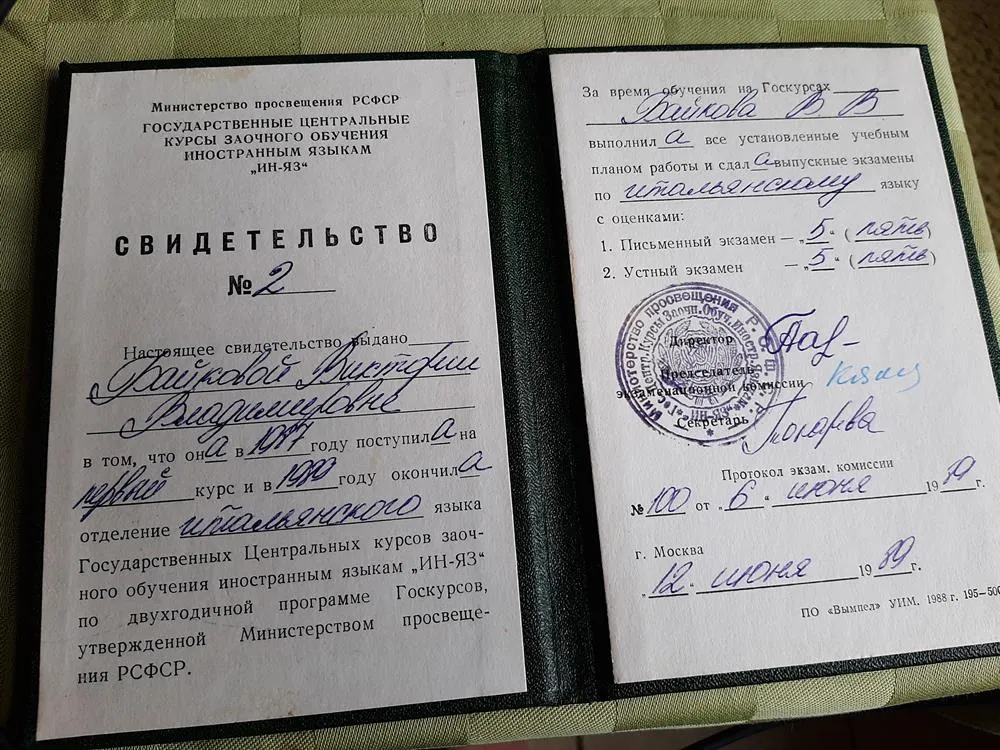 Министерство просвещения РСФСР
ГОСУДАРСТВЕННЫЕ ЦЕНТРАЛЬНЫЕ
КУРСЫ ЗАОЧНОГО ОБУЧЕНИЯ
ИНОСТРАННЫМ ЯЗЫКАМ
„ИН-ЯЗ“
СВИДЕТЕЛЬСТВО
№ 2
Настоящее свидетельство выдано
Байковой Виктории
Владимировне
в том, что она в 1987 году поступила на
первый курс и в 1989 году окончила
отделение итальянского языка
Государственных Центральных курсов заоч-
ного обучения иностранным языкам „ИН-ЯЗ“
по двухгодичной программе Госкурсов,
утвержденной Министерством просвеще-
ния РСФСР.
За время обучения на Госкурсах
Байкова В В
выполнила все установленные учебным
планом работы и сдала выпускные экзамены
по итальянскому языку
с оценками:
1. Письменный экзамен — „5“ (пять)
2. Устный экзамен — „5“ (пять)
Министерство просвещения Р.С.Ф.С.Р.
Гос. Центр. Курсы Заочн. Обуч. Иностр. Языкам
„ИН-ЯЗ“
Директор
Председатель
экзаменационной комиссии
Секретарь
Протокол экзам. комиссии
№ 100 от „6“ июня 1989 г.
г. Москва
„12“ июня 1989 г.
ПО «Вымпел» УИМ. 1988 г. 195—500